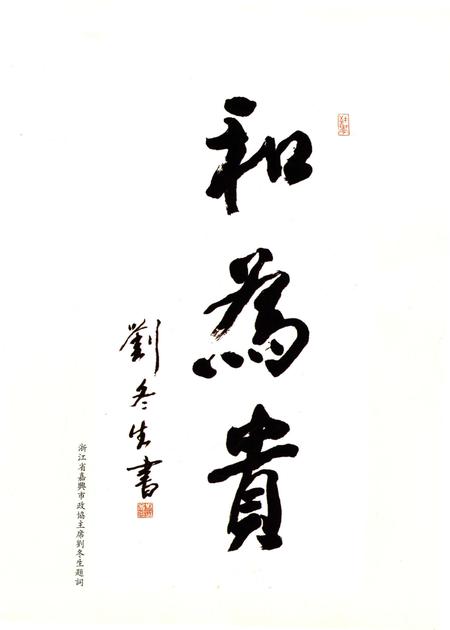 和為貴
劉冬生書
浙江省嘉興市政協主席劉冬生題詞